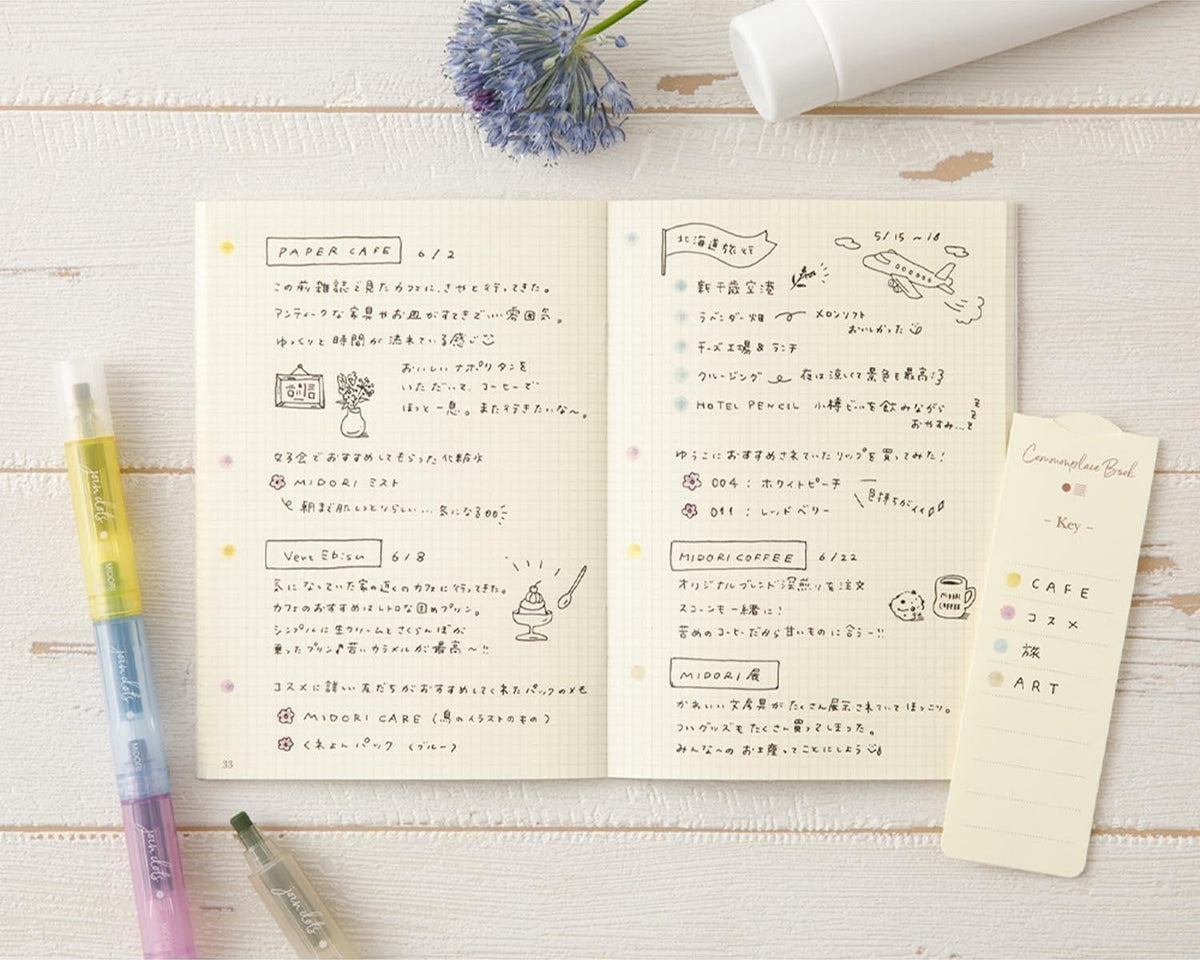 PAPER CAFE 6/2
この前雑誌で見たカフェに、さやと行ってきた。
アンティークな家具やお皿がすてきでいい雰囲気。
ゆっくりと時間が流れている感じ
おいしいナポリタンを
いただいて、コーヒーで
ほっと一息。また行きたいな〜。
女子会でおすすめしてもらった化粧水
MIDORI ミスト
朝まで肌しっとりらしい…気になる
Vert Ebisu 6/8
気になっていた家の近くのカフェに行ってきた。
カフェのおすすめはレトロな固めプリン。
シンプルに生クリームとさくらんぼが
乗ったプリン♪苦いカラメルが最高〜!!
コスメに詳しい友だちがおすすめしてくれたパックのメモ
MIDORI CARE (鳥のイラストのもの)
くれよんパック (ブルー)
33
北海道旅行
5/15~18
新千歳空港
ラベンダー畑 メロンソフト
おいしかった
チーズ工場 & ランチ
クルージング 夜は涼しくて景色も最高!
HOTEL PENCIL 小樽ビールを飲みながら
おやすみ...
z
z
z
ゆうこにおすすめされていたリップを買ってみた!
004 : ホワイトピーチ
011 : レッドベリー
色持ちがイイ
MIDORI COFFEE 6/22
オリジナルブレンド深煎りを注文
スコーンも一緒に!
苦めのコーヒーだから甘いものに合う〜!!
MIDORI COFFEE
MIDORI 展
かわいい文房具がたくさん展示されていてほっこり。
ついグッズもたくさん買ってしまった。
みんなへのお土産ってことにしよう
Commonplace Book
- Key -
CAFE
コスメ
旅
ART
join dots
MIDORI
join dots
MIDORI
join dots
MIDORI
join dots